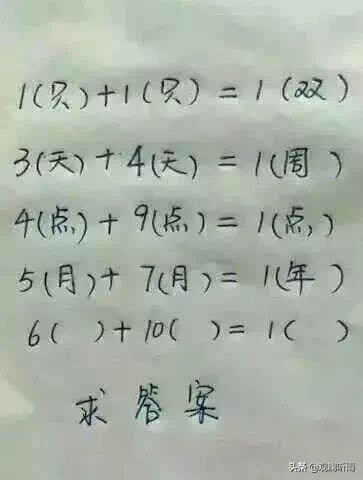 1(只)+1(只)=1(双)
3(天)+4(天)=1(周)
4(点)+9(点)=1(点)
5(月)+7(月)=1(年)
6( )+10( )=1( )
求答案
头条@观棋听雨